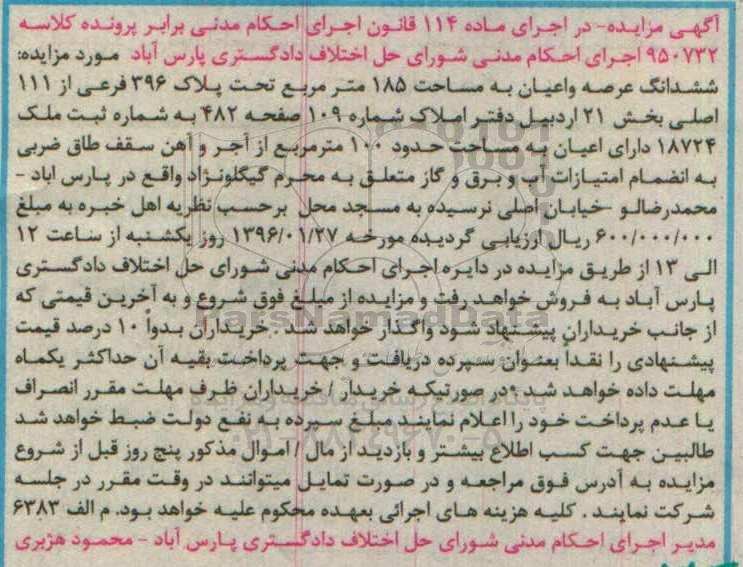 آگهی مزایده- در اجرای ماده ۱۱۴ قانون اجرای احکام مدنی برابر پرونده کلاسه
۹۵۰۷۳۲ اجرای احکام مدنی شورای حل اختلاف دادگستری پارس آباد مورد مزایده:
ششدانگ عرصه واعیان به مساحت ۱۸۵ متر مربع تحت پلاک ۳۹۶ فرعی از ۱۱۱
اصلی بخش ۲۱ اردبیل دفتر املاک شماره ۱۰۹ صفحه ۴۸۲ به شماره ثبت ملک
۱۸۷۲۴ دارای اعیان به مساحت حدود ۱۰۰ مترمربع از آجر و آهن سقف طاق ضربی
به انضمام امتیازات آب و برق و گاز متعلق به محرم گیگلونژاد واقع در پارس اباد -
محمدرضالو -خیابان اصلی نرسیده به مسجد محل برحسب نظریه اهل خبره به مبلغ
۶۰۰/۰۰۰/۰۰۰ ریال ارزیابی گردیده مورخه ۱۳۹۶/۰۱/۲۷ روز یکشنبه از ساعت ۱۲
الی ۱۳ از طریق مزایده در دایره اجرای احکام مدنی شورای حل اختلاف دادگستری
پارس آباد به فروش خواهد رفت و مزایده از مبلغ فوق شروع و به آخرین قیمتی که
از جانب خریداران پیشنهاد شود واگذار خواهد شد . خریداران بدواً ۱۰ درصد قیمت
پیشنهادی را نقداً بعنوان سپرده دریافت و جهت پرداخت بقیه آن حداکثر یکماه
مهلت داده خواهد شد در صورتیکه خریدار / خریداران ظرف مهلت مقرر انصراف
یا عدم پرداخت خود را اعلام نمایند مبلغ سپرده به نفع دولت ضبط خواهد شد
طالبین جهت کسب اطلاع بیشتر و بازدید از مال / اموال مذکور پنج روز قبل از شروع
مزایده به آدرس فوق مراجعه و در صورت تمایل میتوانند در وقت مقرر در جلسه
شرکت نمایند . کلیه هزینه های اجرائی بعهده محکوم علیه خواهد بود. م الف ۶۳۸۳
مدیر اجرای احکام مدنی شورای حل اختلاف دادگستری پارس آباد - محمود هژبری
ParsNamadData